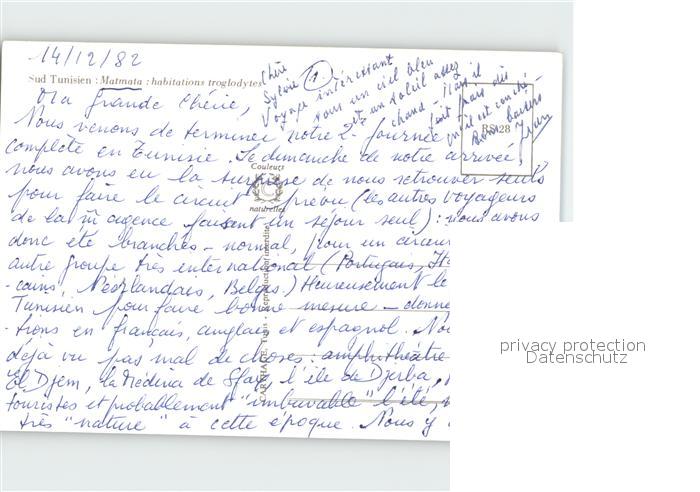 14/12/82
Sud Tunisien : Matmata : habitations troglodytes
Chère
Sylvie (1)
Voyage intéressant
sous un ciel bleu
et un soleil assez
chaud. Mais il
fait frais dès
qu'il est couché
Bons baisers
Ma grande Chérie,
RS 28
Nous venons de terminer notre 2e journée
complète en Tunisie. Le dimanche de notre arrivée,
nous avons eu la surprise de nous retrouver seuls
pour faire le circuit prévu (les autres voyageurs
de la m̂ agence faisant un séjour seul) : nous avons
donc été branchés - normal, pour un circuit
autre groupe très international (Portugais,
-cains, Néerlandais, Belges.) Heureusement le
Tunisien pour faire bonne mesure - donne
-tions en français, anglais et espagnol. Nou
déjà vu pas mal de choses : amphithéâtre
El Djem, la Médina de Sfax, l'île de Djerba,
touristes et probablement "imbuvable" l'été,
très "nature" à cette époque. Nous y
Couleurs
naturelles
CARTHAGE Tunis Reproduction interdite
privacy protection
Datenschutz